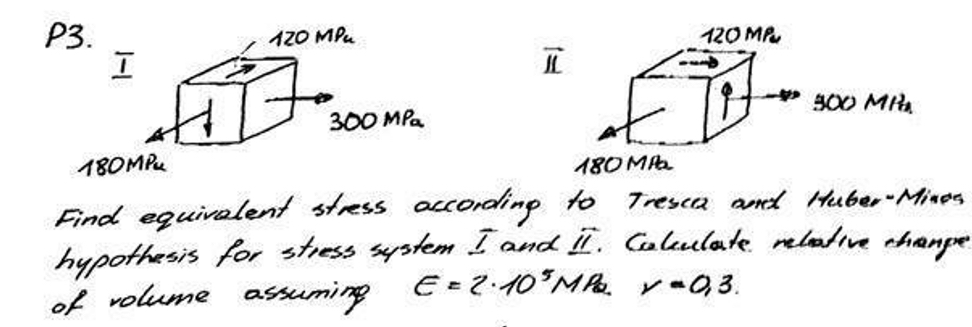 P3.
I
120 MPa
300 MPa
180 MPa
II
120 MPa
300 MPa
180 MPa
Find equivalent stress according to Tresca and Huber-Mises
hypothesis for stress system I and II. Calculate relative change
of volume assuming E = 2·10⁵ MPa ν = 0,3.